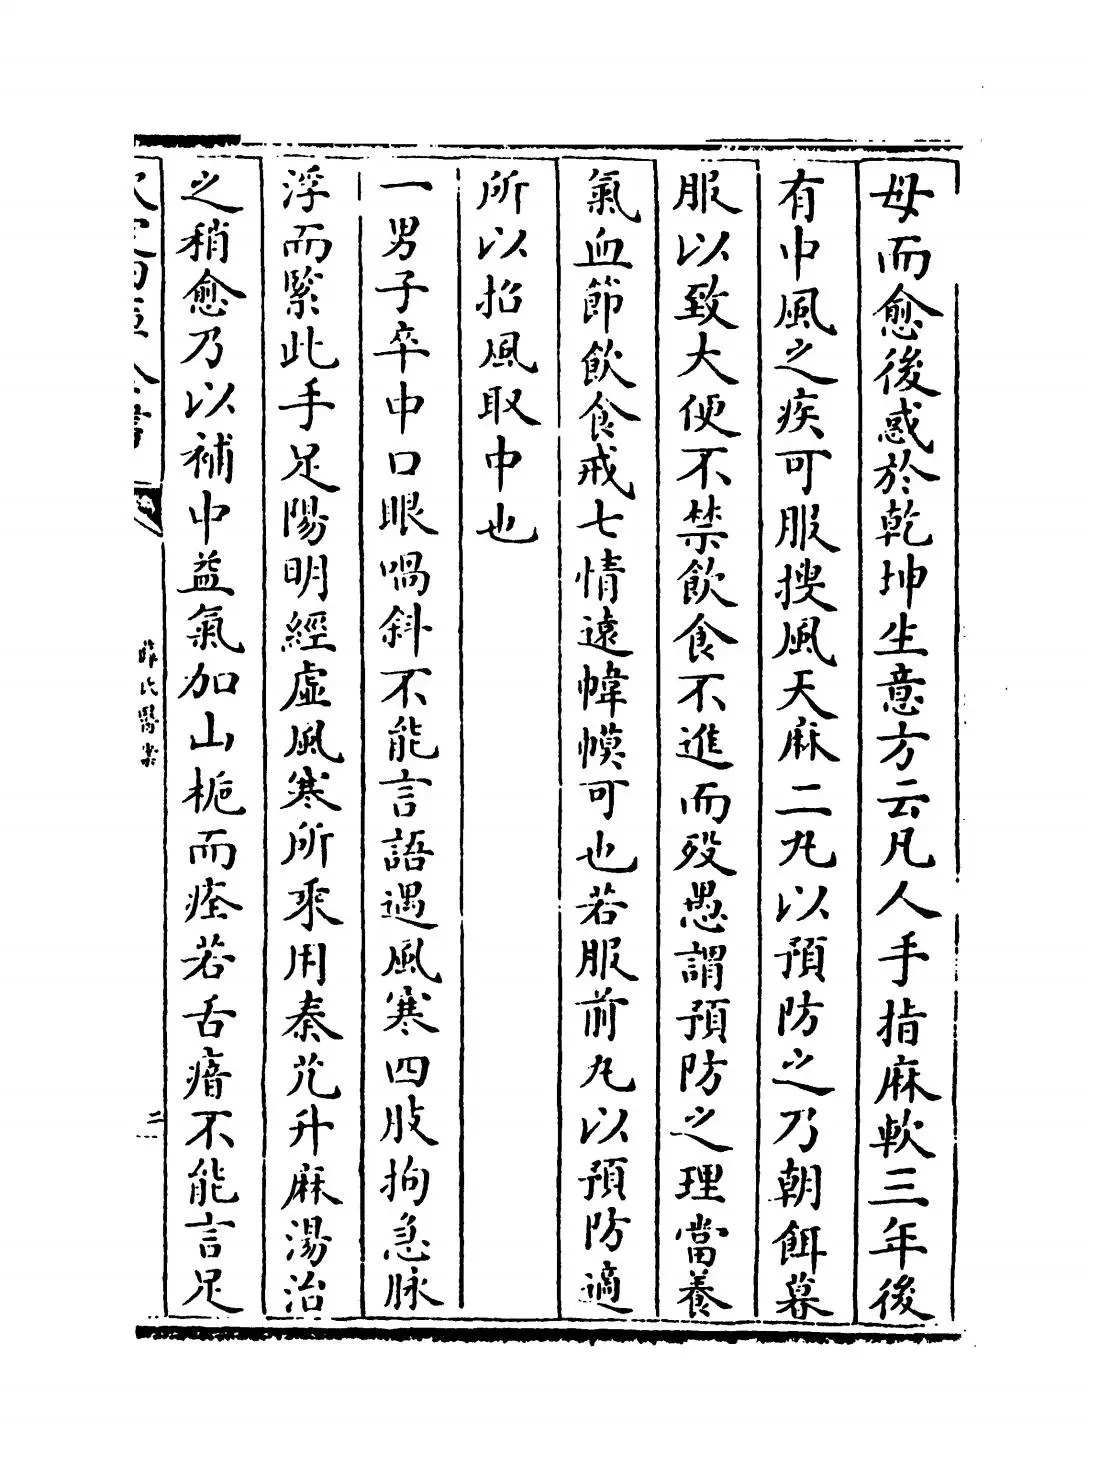 母而愈後惑於乾坤生意方云凡人手指麻軟三年後
有中風之疾可服搜風天麻二丸以預防之乃朝餌暮
服以致大便不禁飲食不進而歿愚謂預防之理當養
氣血節飲食戒七情遠幃幙可也若服前丸以預防適
所以招風取中也
一男子卒中口眼喎斜不能言語遇風寒四肢拘急脉
浮而緊此手足陽明經虛風寒所乘用秦艽升麻湯治
之稍愈乃以補中益氣加山梔而痊若舌瘖不能言足
薛氏醫案
二